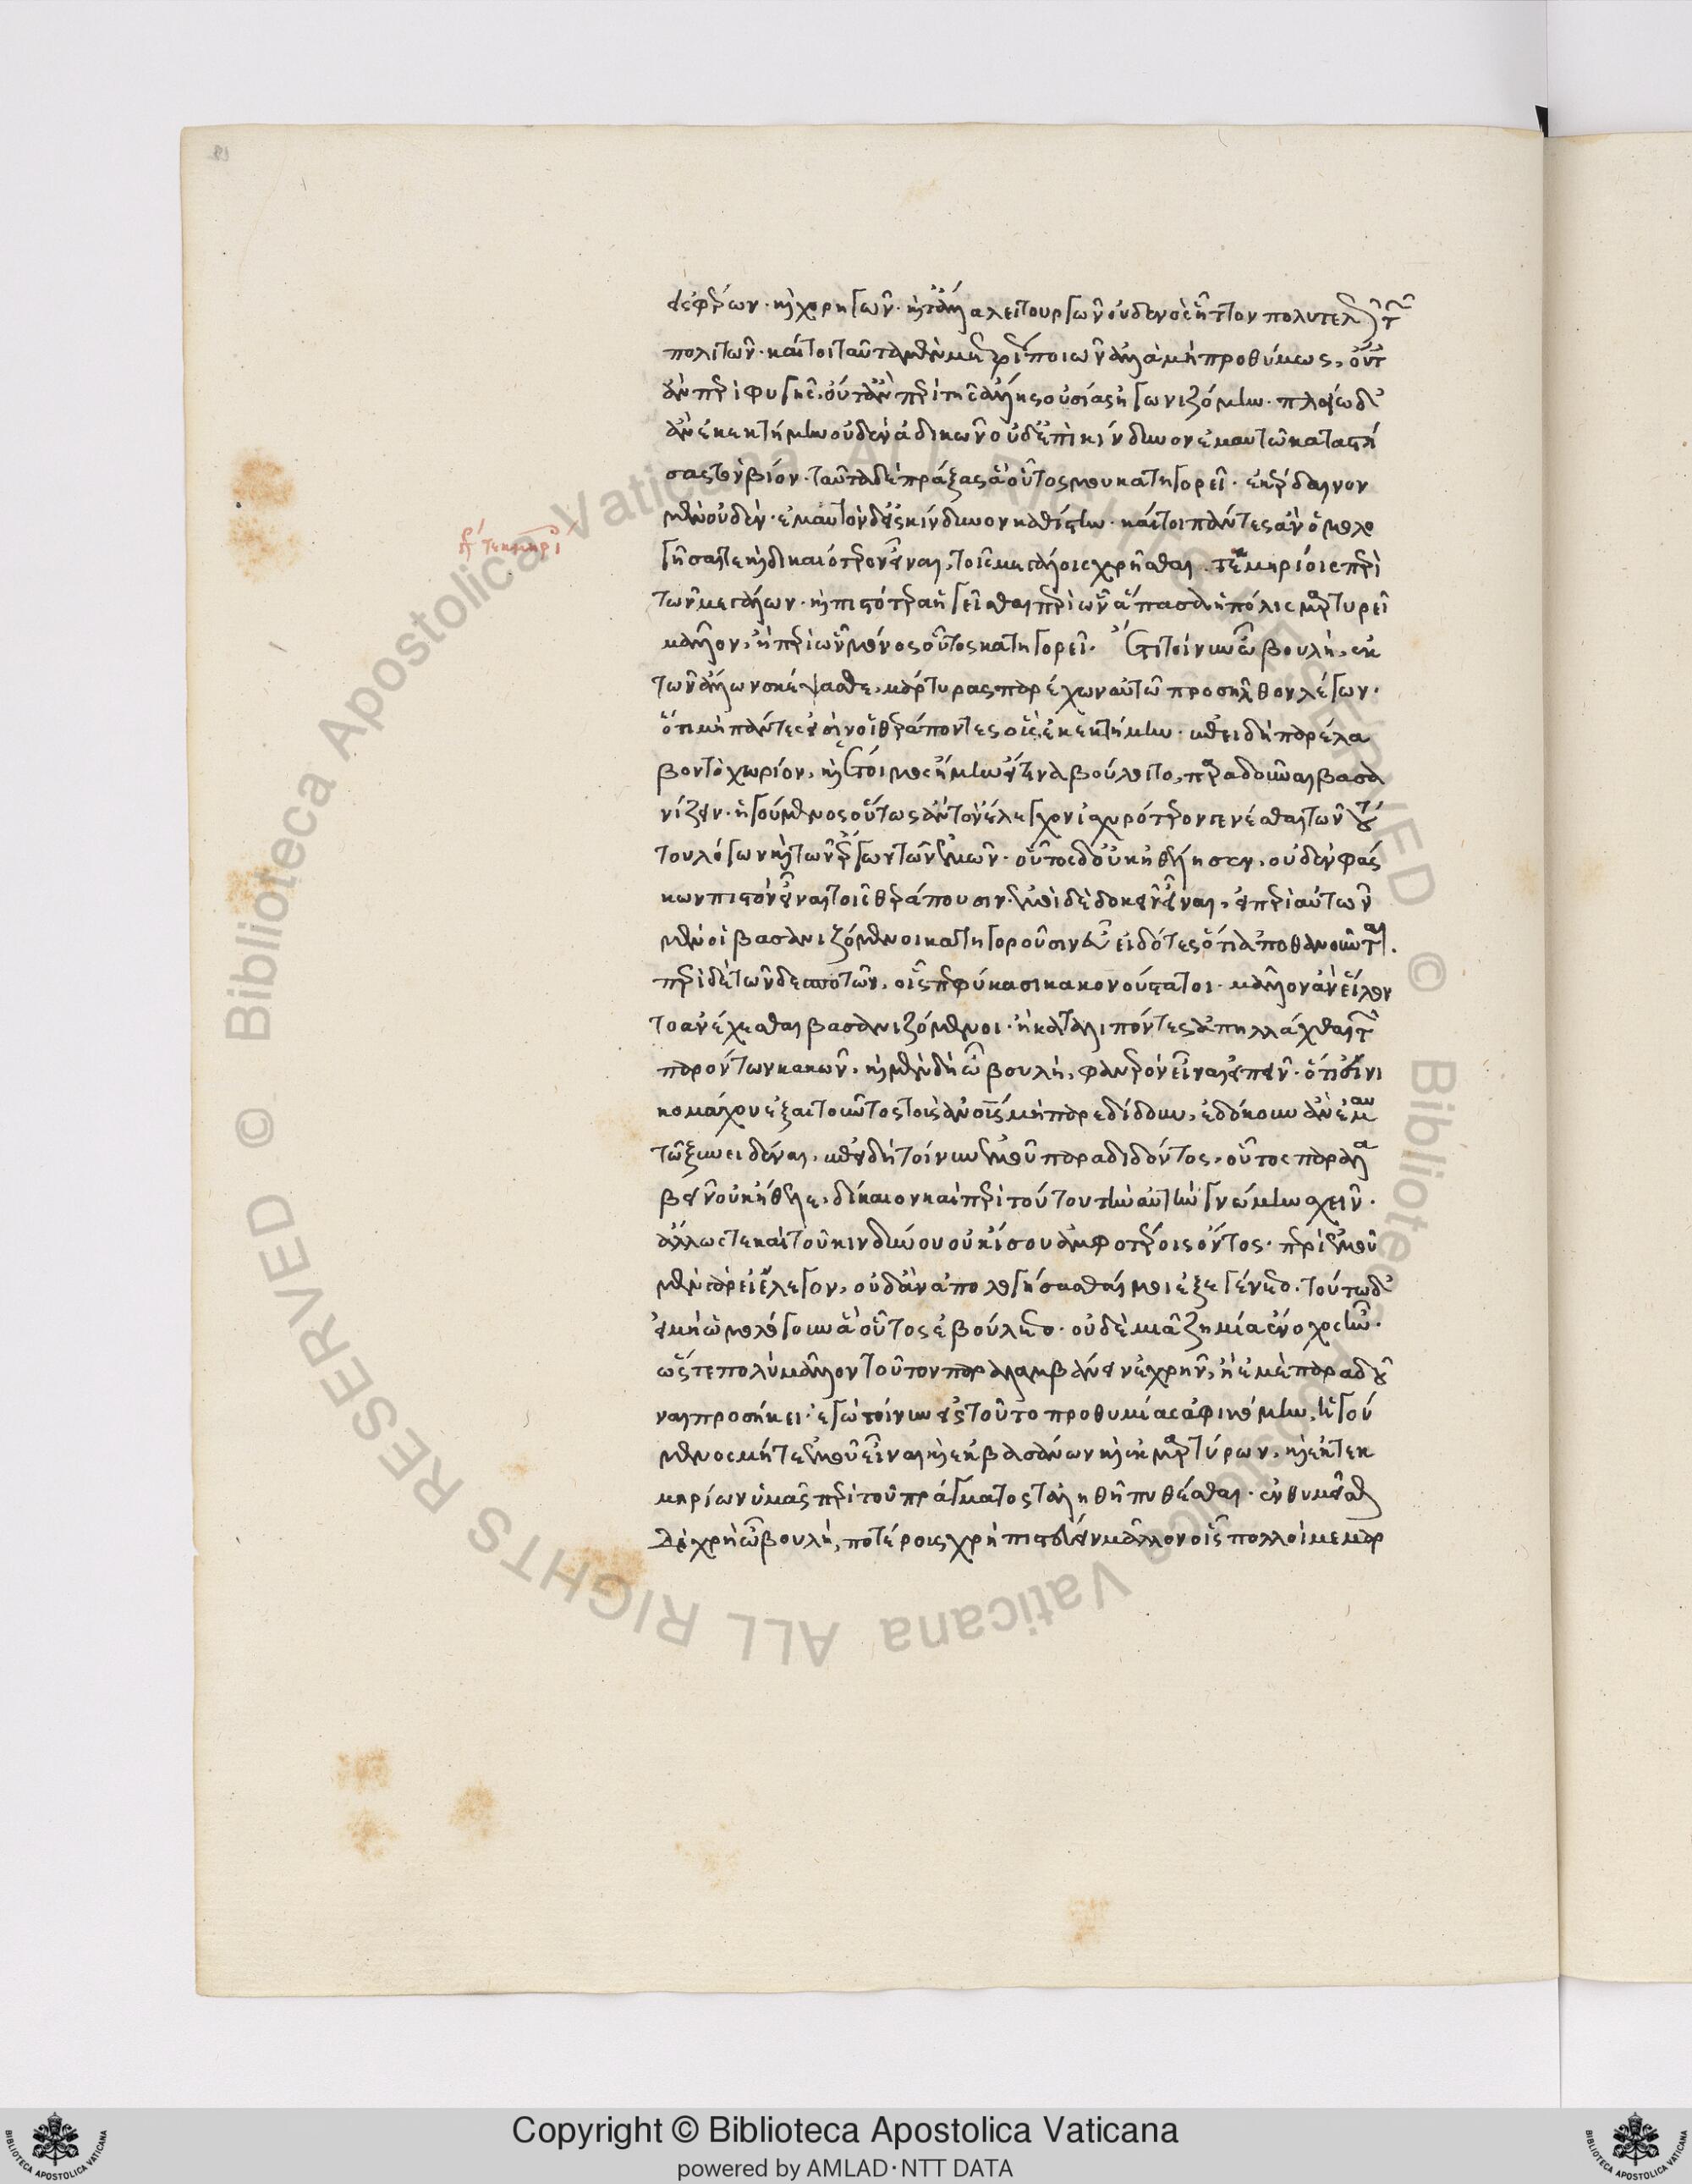 σεφέρων· καὶ χορηγῶν· καὶ τἄλλα λειτουργῶν οὐδενὸς ἧττον πολυτελῶς τῶν
πολιτῶν· καίτοι ταῦτα μὲν μετρίως ποιῶν ἀλλὰ μὴ προθύμως, οὔτ'
ἂν περὶ φυγῆς, οὔτ' ἂν περὶ τῆς ἄλλης οὐσίας ἠγωνιζόμην· πλείω δ'
ἂν ἐκεκτήμην οὐδὲν ἀδικῶν οὐδ' ἐπικίνδυνον ἐμαυτῶ καταστή
σας τὸν βίον· ταῦτα δὲ πράξας ἃ οὗτος μου κατηγορεῖ· ἐκέρδαινον
μὲν οὐδέν· ἐμαυτὸν δ' εἰς κίνδυνον καθίστην· καίτοι πάντες ἂν ὁμολο
γήσαιτε καὶ δικαιότερον εἶναι, τοῖς μεγάλοις χρῆσθαι τεκμηρίοις περὶ
τῶν μεγάλων· καὶ πιστότερα ἡγεῖσθαι περὶ ὧν ἅπασα ἡ πόλις μαρτυρεῖ
μᾶλλον, ἢ περὶ ὧν μόνος οὗτος κατηγορεῖ· Ἔτι τοίνυν ὦ βουλή, ἐκ
τῶν ἄλλων σκέψασθε, μάρτυρας παρέχων αὐτῶ προσῆλθον λέγων·
ὅτι μὴ πάντες εἰσὶν οἱ θεράποντες οὓς ἐκεκτήμην· ἐπειδὴ παρέλα
βον τὸ χωρίον, καὶ ἕτοιμος ἤμην εἴ τινα βούλοιτο, παραδοῦναι βασα
νίζειν· ἡγούμενος οὕτως ἂν τὸν ἔλεγχον ἰσχυρότερον γενέσθαι τῶν τού
του λόγων καὶ τῶν ἔργων τῶν ἐμῶν· οὗτος δ' οὐκ ἤθελησεν, οὐδὲν φάσ
κων πιστὸν εἶναι τοῖς θεράπουσιν· ἐμοὶ δὲ δοκεῖν εἶναι, εἰ περὶ αὐτῶν
μὲν οἱ βασανιζόμενοι κατηγοροῦσιν εὖ εἰδότες ὅτι ἀποθανοῦνται.
περὶ δὲ τῶν δεσποτῶν, οἷς πεφύκασι κακονούστατοι· μᾶλλον ἂν εἵλον
το ἀνέχεσθαι βασανιζόμενοι· ἢ καταλιπόντες ἀπηλλάχθαι τῶν
παρόντων κακῶν, καὶ μὲν δὴ ὦ βουλή, φανερὸν εἶναι εἰπεῖν· ὅτι εἰ νι
κομάχου ἐξαιτοῦντος τοὺς ἀνοὺς μὴ παρεδίδουν, ἐδόκουν ἂν ἐμαυ
τῶ ξυνειδέναι, ἐπειδὴ τοίνυν ἐμοῦ παραδιδόντος, οὗτος παραλα
βεῖν οὐκ ἤθελε, δίκαιον καὶ περὶ τούτου τὴν αὐτὴν γνώμην σχεῖν·
ἄλλως τε καὶ τοῦ κινδύνου οὐκ ἴσου ἀμφοτέροις ὄντος· περὶ ἐμοῦ
μὲν γὰρ εἰ ἔλεγον, οὐδ' ἂν ἀπολογήσασθαί μοι ἐξεγένετο· τούτω δ'
εἰ μὴ ὡμολόγουν ἃ οὗτος ἐβούλετο· οὐδὲ μιᾶ ζημία ἔνοχος ἦν·
ὥστε πολὺ μᾶλλον τοῦτον παραλαμβάνειν ἐχρῆν, ἢ ἐμὲ παραδοῦ
ναι προσήκει· ἐγὼ τοίνυν εἰς τοῦτο προθυμίας ἀφικόμην, ἡγού
μενος μήτε ἐμοῦ εἶναι καὶ ἐκ βασάνων καὶ ἐκ μαρτύρων, καὶ ἐκ τεκ
μηρίων ὑμᾶς περὶ τοῦ πράγματος τἀληθῆ πυθέσθαι· ἐνθυμεῖσθαι
δὲ χρὴ ὦ βουλή, ποτέροις χρὴ πιστεύειν μᾶλλον οἷς πολλοὶ μεμαρ
Copyright © Biblioteca Apostolica Vaticana
powered by AMLAD·NTT DATA